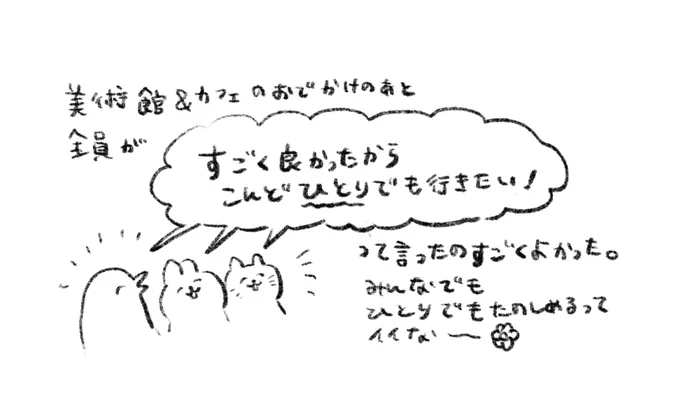 美術館&カフェのおでかけのあと
全員が
すごく良かったから
こんどひとりでも行きたい!
って言ったのすごくよかった。
みんなでも
ひとりでもたのしめるって
イイなー